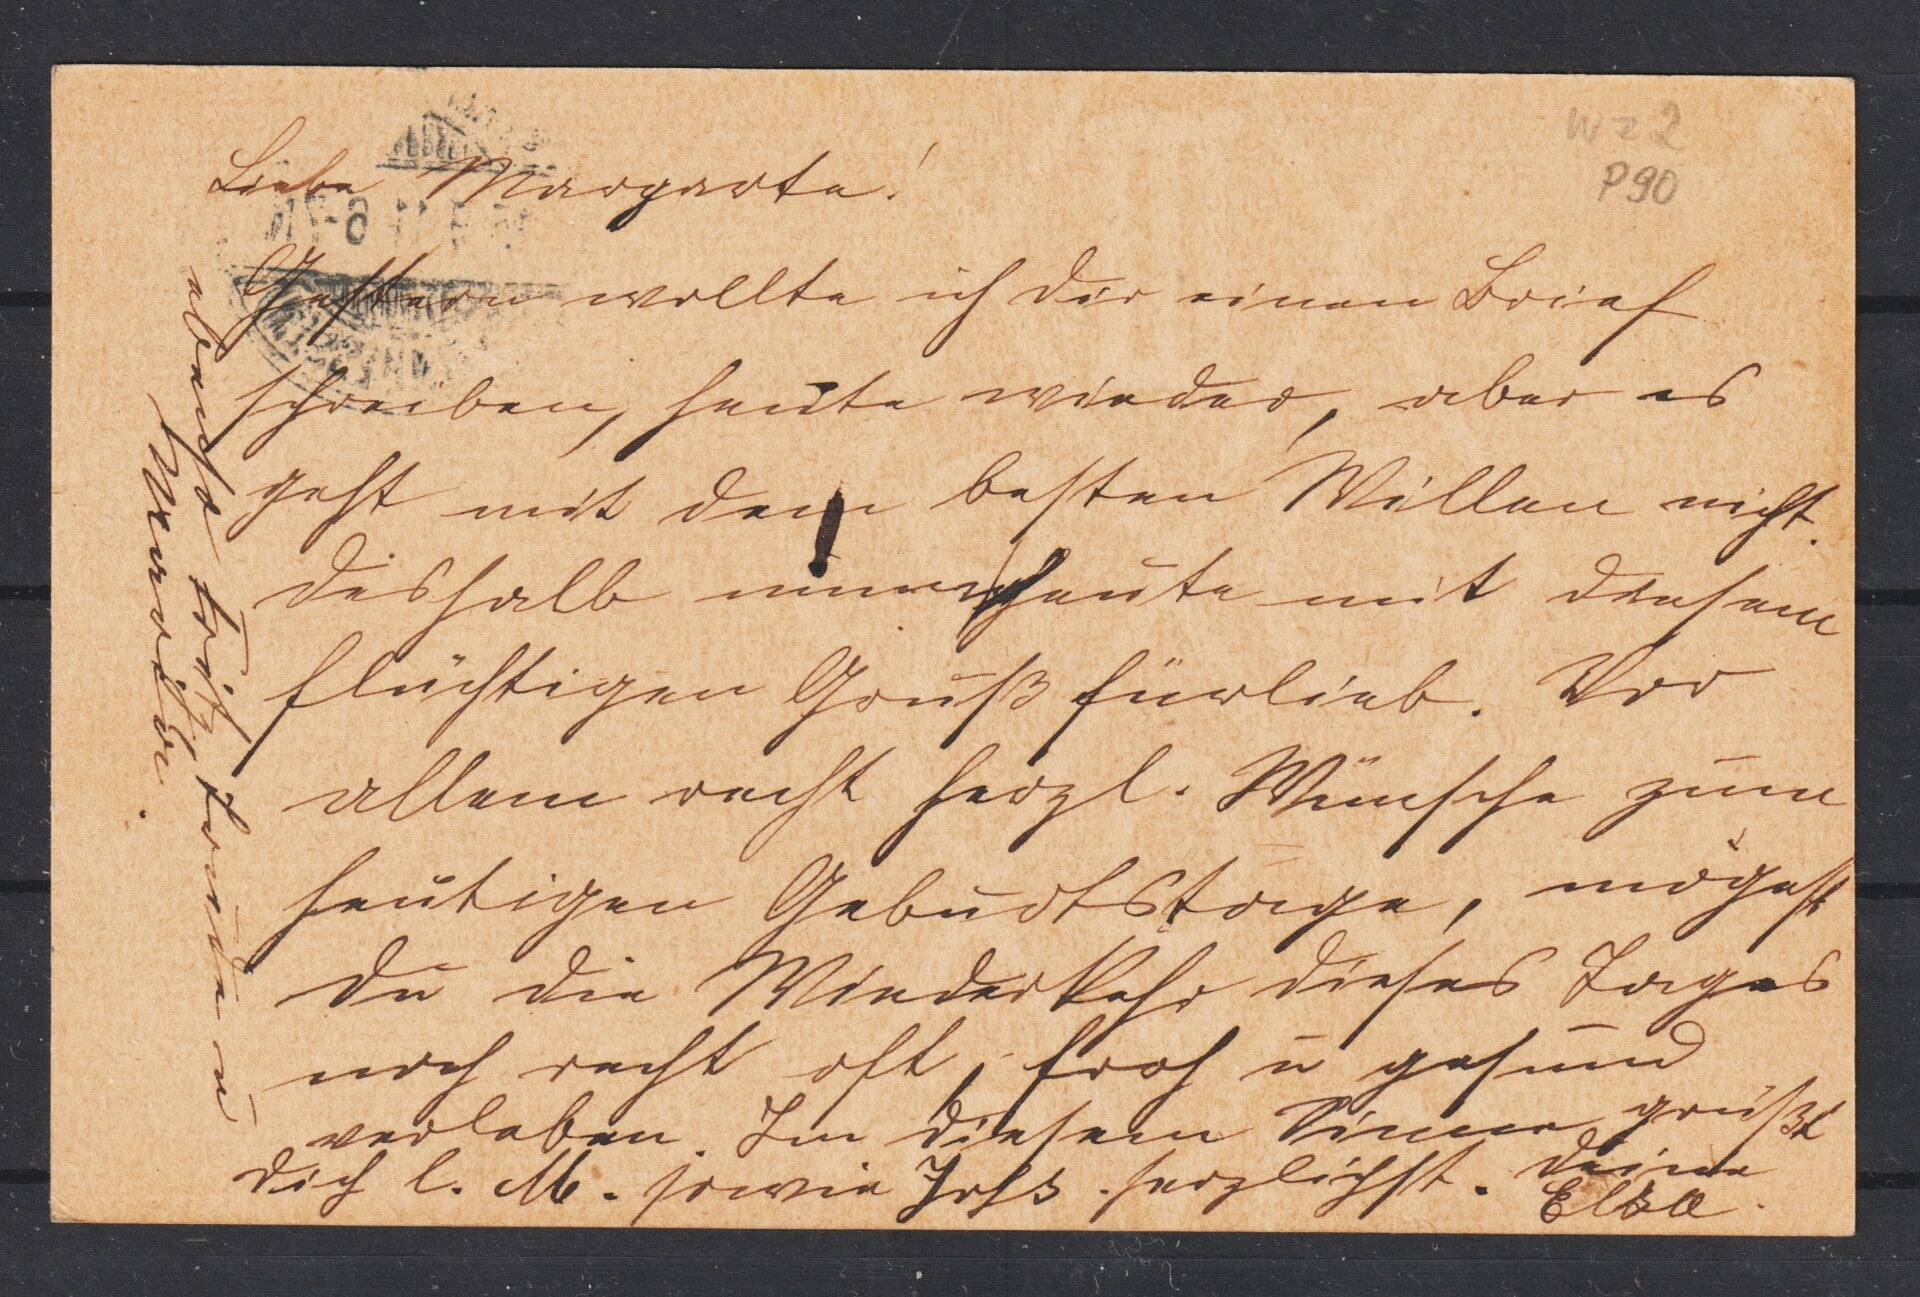 Wz 2
P90
Liebe Margarete!
Gestern wollte ich dir einen Brief
schreiben, heute wieder, aber es
geht mit dem besten Willen nicht.
deshalb nimm heute mit diesem
flüchtigen Gruß fürlieb. Vor
allem recht herzl. Wünsche zum
heutigen Geburtstage, mögest
du die Wiederkehr dieses Tages
noch recht oft, froh u gesund
verleben. Im diesem Sinne grüßt
dich l. M. sowie herzlichst. deine
Elsa.
ebenso